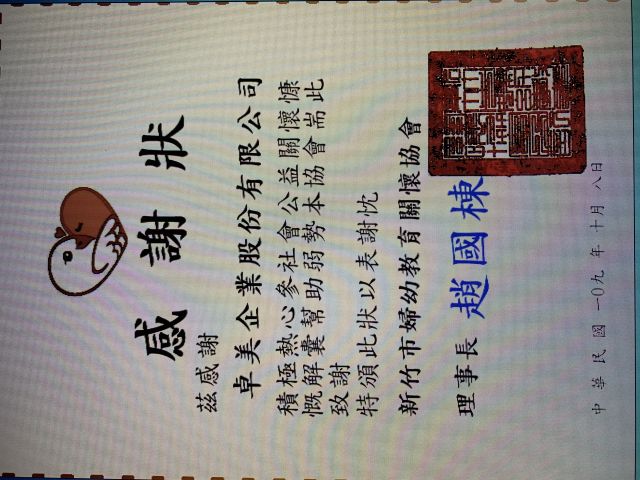 感謝狀
茲感謝
卓美企業股份有限公司
積極熱心參社會公益關懷慷
慨解囊幫助弱勢本協會耑此
致謝
特頒此狀以表謝忱
新竹市婦幼教育關懷協會
理事長 趙國棟
中華民國 一0九 年 十月 八日